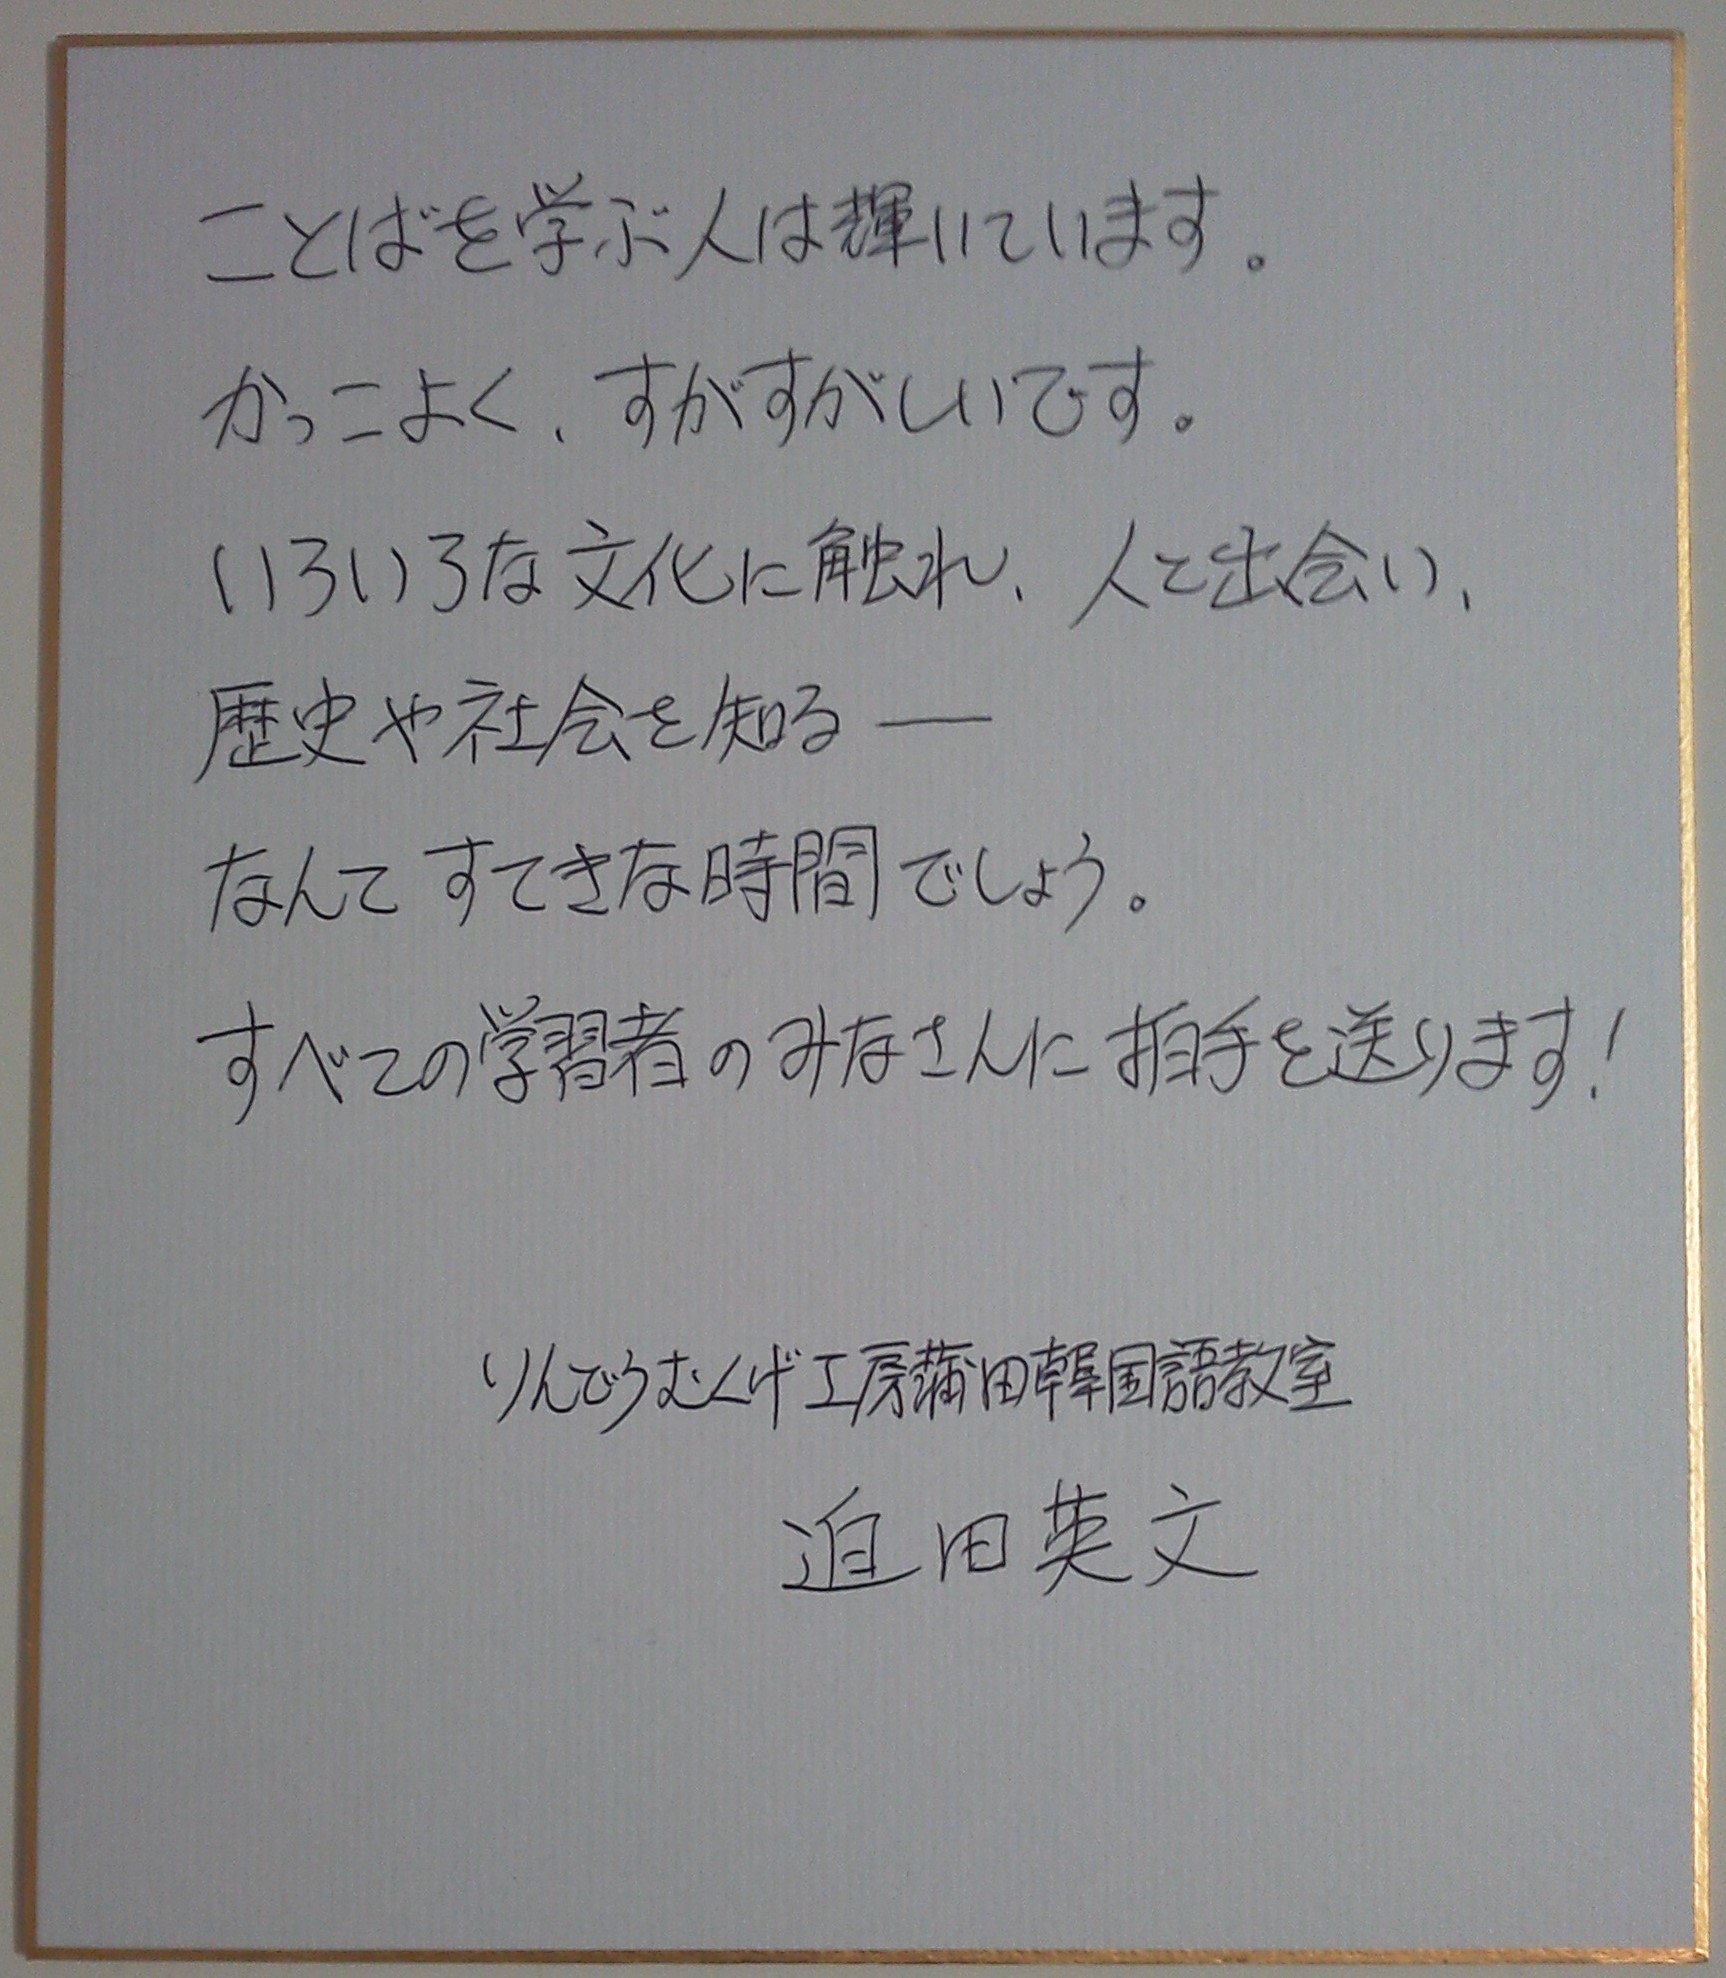 ことばを学ぶ人は輝いています。
かっこよく、すがすがしいです。
いろいろな文化に触れ、人と出会い、
歴史や社会を知る ―
なんて すてきな時間でしょう。
すべての学習者のみなさんに拍手を送ります!
りんどうむくげ工房蒲田韓国語教室
迫田英文